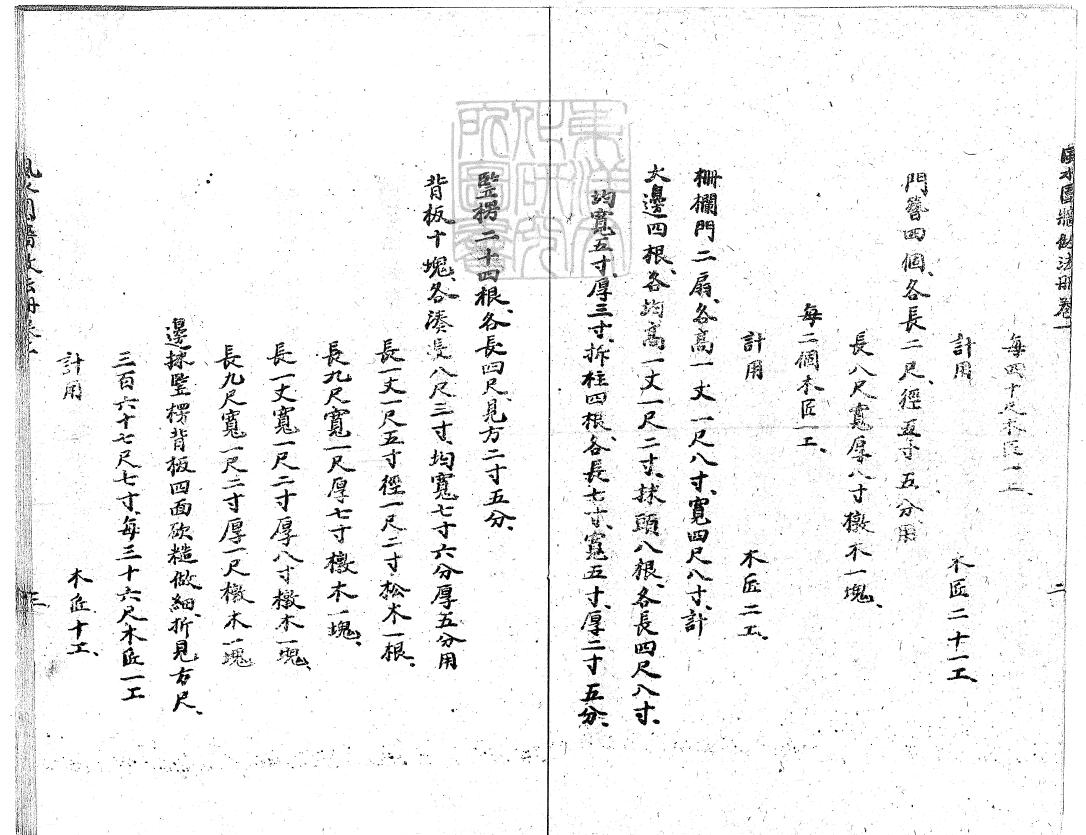 風水圍牆做法冊卷一
二
每四十尺木匠一工
計用
木匠二十一工、
門簪四個、各長二尺、徑五寸五分用
長八尺寬厚八寸檄木一塊、
每二個木匠一工、
計用
木匠二工、
柵欄門二扇、各高一丈一尺八寸、寬四尺八寸、計
大邊四根、各均高一丈一尺二寸、抹頭八根、各長四尺八寸、
均寬五寸、厚三寸、拆柱四根、各長七寸、寬五寸、厚二寸五分、
東洋文化研究所圖書
豎楞二十四根、各長四尺、見方二寸五分、
背板十塊、各湊長八尺三寸、均寬七寸六分厚五分用
長一丈一尺五寸徑一尺二寸松木一根、
長九尺寬一尺厚七寸檄木一塊、
長一丈寬一尺二寸厚八寸檄木一塊、
長九尺寬一尺二寸厚一尺檄木一塊
邊抹豎楞背板四面砍糙做細、折見方尺、
三百六十七尺七寸、每三十六尺木匠一工
計用
木匠十工、
風水圍牆做法冊卷一
三